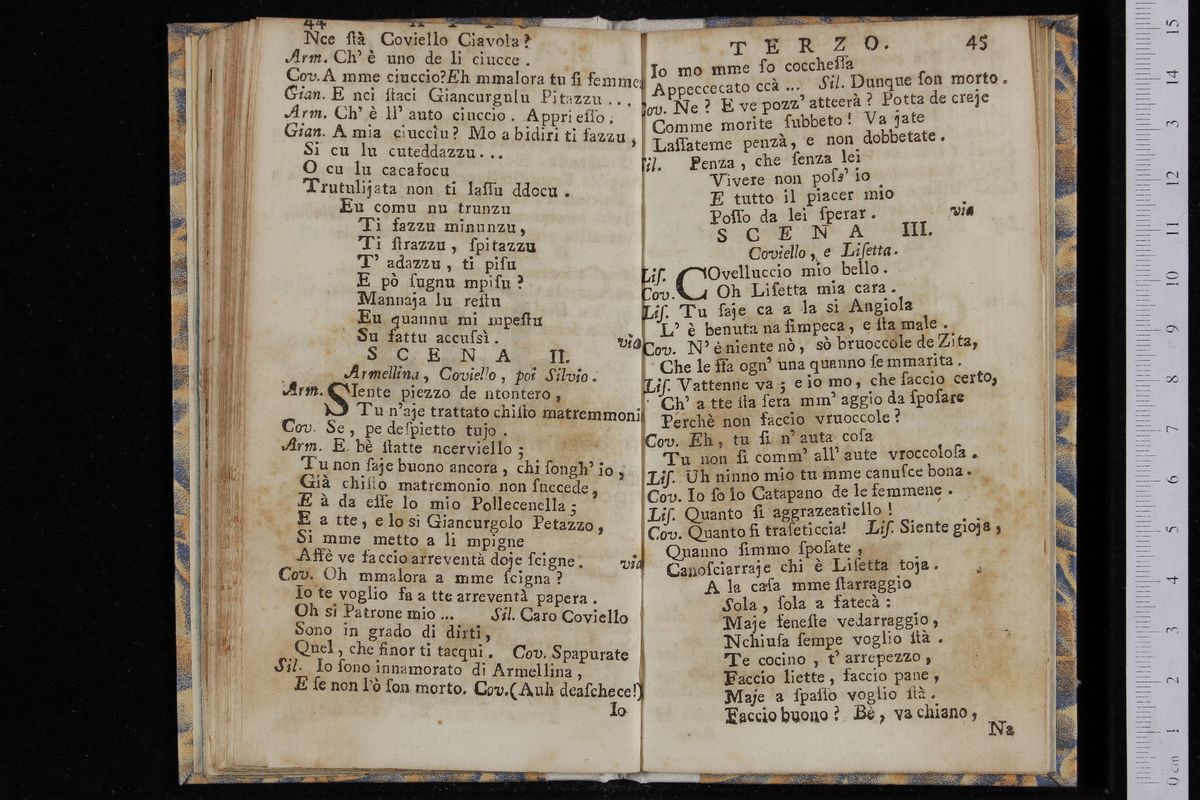 44
Nce ſtà Coviello Ciavola?
Arm. Ch' è uno de li ciucce.
Cov. A mme ciuccio? Eh mmalora tu ſi femme
Gian. E nci ſtaci Giancurgulu Pitazzu...
Arm. Ch' è ll' auto ciuccio. Appri eſſo.
Gian. A mia ciucciu? Mo a bidiri ti fazzu,
Si cu lu cuteddazzu...
O cu lu cacafocu
Trutulijata non ti laſſu ddocu.
Eu comu nu trunzu
Ti fazzu minunzu,
Ti ſtrazzu, ſpitazzu
T' adazzu, ti piſu
E pò ſugnu mpiſu?
Mannaja lu reſtu
Eu quannu mi mpeſtu
Su fattu accuſsì. via
SCENA II.
Armellina, Coviello, poi Silvio.
Arm. SIente piezzo de ntontero,
Tu n'aje trattato chiſto matremmoni
Cov. Se, pe deſpietto tujo.
Arm. E bè ſtatte ncerviello;
Tu non ſaje buono ancora, chi ſongh' io,
Già chiſto matremonio non ſuccede,
E à da eſſe lo mio Pollecenella;
E a tte, e lo si Giancurgolo Petazzo,
Si mme metto a li mpigne
Affè ve faccio arreventà doje ſcigne. via
Cov. Oh mmalora a mme ſcigna?
Io te voglio fa a tte arreventà papera.
Oh si Patrone mio... Sil. Caro Coviello
Sono in grado di dirti,
Quel, che finor ti tacqui. Cov. Spapurate
Sil. Io ſono innamorato di Armellina,
E ſe non l'ò ſon morto. Cov. (Auh deaſchece!)
Io
TERZO. 45
Io mo mme ſo coccheſſa
Appeccecato ccà... Sil. Dunque ſon morto.
Cov. Ne? E ve pozz' atteerà? Potta de craje
Comme morite ſubbeto! Va jate
Laſſateme penzà, e non dobbetate.
Sil. Penza, che ſenza lei
Vivere non poſs' io
E tutto il piacer mio
Poſſo da lei ſperar. via
SCENA III.
Coviello, e Liſetta.
Liſ. COvelluccio mio bello.
Cov. Oh Liſetta mia cara.
Liſ. Tu ſaje ca a la si Angiola
L' è benuta na ſimpeca, e ſta male.
Cov. N' è niente nò, sò bruoccole de Zita,
Che le ſſa ogn' una quanno ſe mmarita.
Liſ. Vattenne va; e io mo, che faccio certo,
Ch' a tte ſta ſera mm' aggio da ſpoſare
Perchè non faccio vruoccole?
Cov. Eh, tu ſi n' auta coſa
Tu non ſi comm' all' aute vroccoloſa.
Liſ. Uh ninno mio tu mme canuſce bona.
Cov. Io ſo lo Catapano de le femmene.
Liſ. Quanto ſi aggrazeatiello!
Cov. Quanto ſi traſeticcia! Liſ. Siente gioja,
Quanno ſimmo ſpoſate,
Canoſciarraje chi è Liſetta toja.
A la caſa mme ſtarraggio
Sola, ſola a fatecà:
Maje feneſte vedarraggio,
Nchiuſa ſempe voglio ſtà.
Te cocino, t' arrepezzo,
Faccio liette, faccio pane,
Maje a ſpaſſo voglio ſtà.
Faccio buono? Bè, va chiano,
Na